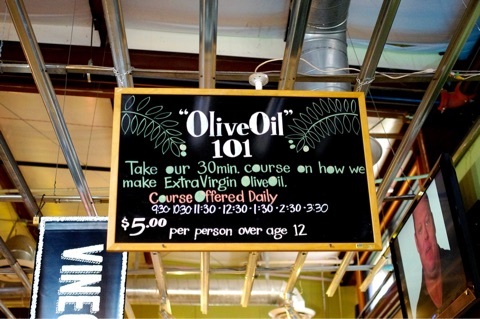 "OliveOil"
101
Take our 30min. course on how we
make ExtraVirgin OliveOil.
Course Offered Daily
9:30·10:30·11:30·12:30·1:30·2:30·3:30
$5.00 per person over age 12
VINE